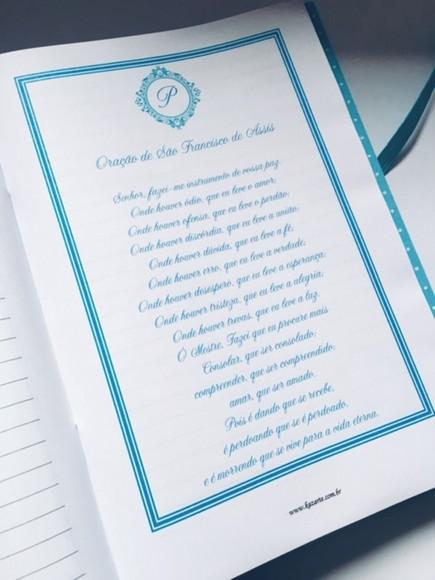 P
Oração de São Francisco de Assis
Senhor, fazei-me instrumento de vossa paz.
Onde houver ódio, que eu leve o amor;
Onde houver ofensa, que eu leve o perdão;
Onde houver discórdia, que eu leve a união;
Onde houver dúvida, que eu leve a fé;
Onde houver erro, que eu leve a verdade;
Onde houver desespero, que eu leve a esperança;
Onde houver tristeza, que eu leve a alegria;
Onde houver trevas, que eu leve a luz.
Ó Mestre, Fazei que eu procure mais
Consolar, que ser consolado;
compreender, que ser compreendido;
amar, que ser amado.
Pois é dando que se recebe,
é perdoando que se é perdoado,
e é morrendo que se vive para a vida eterna.
www.kazarte.com.br